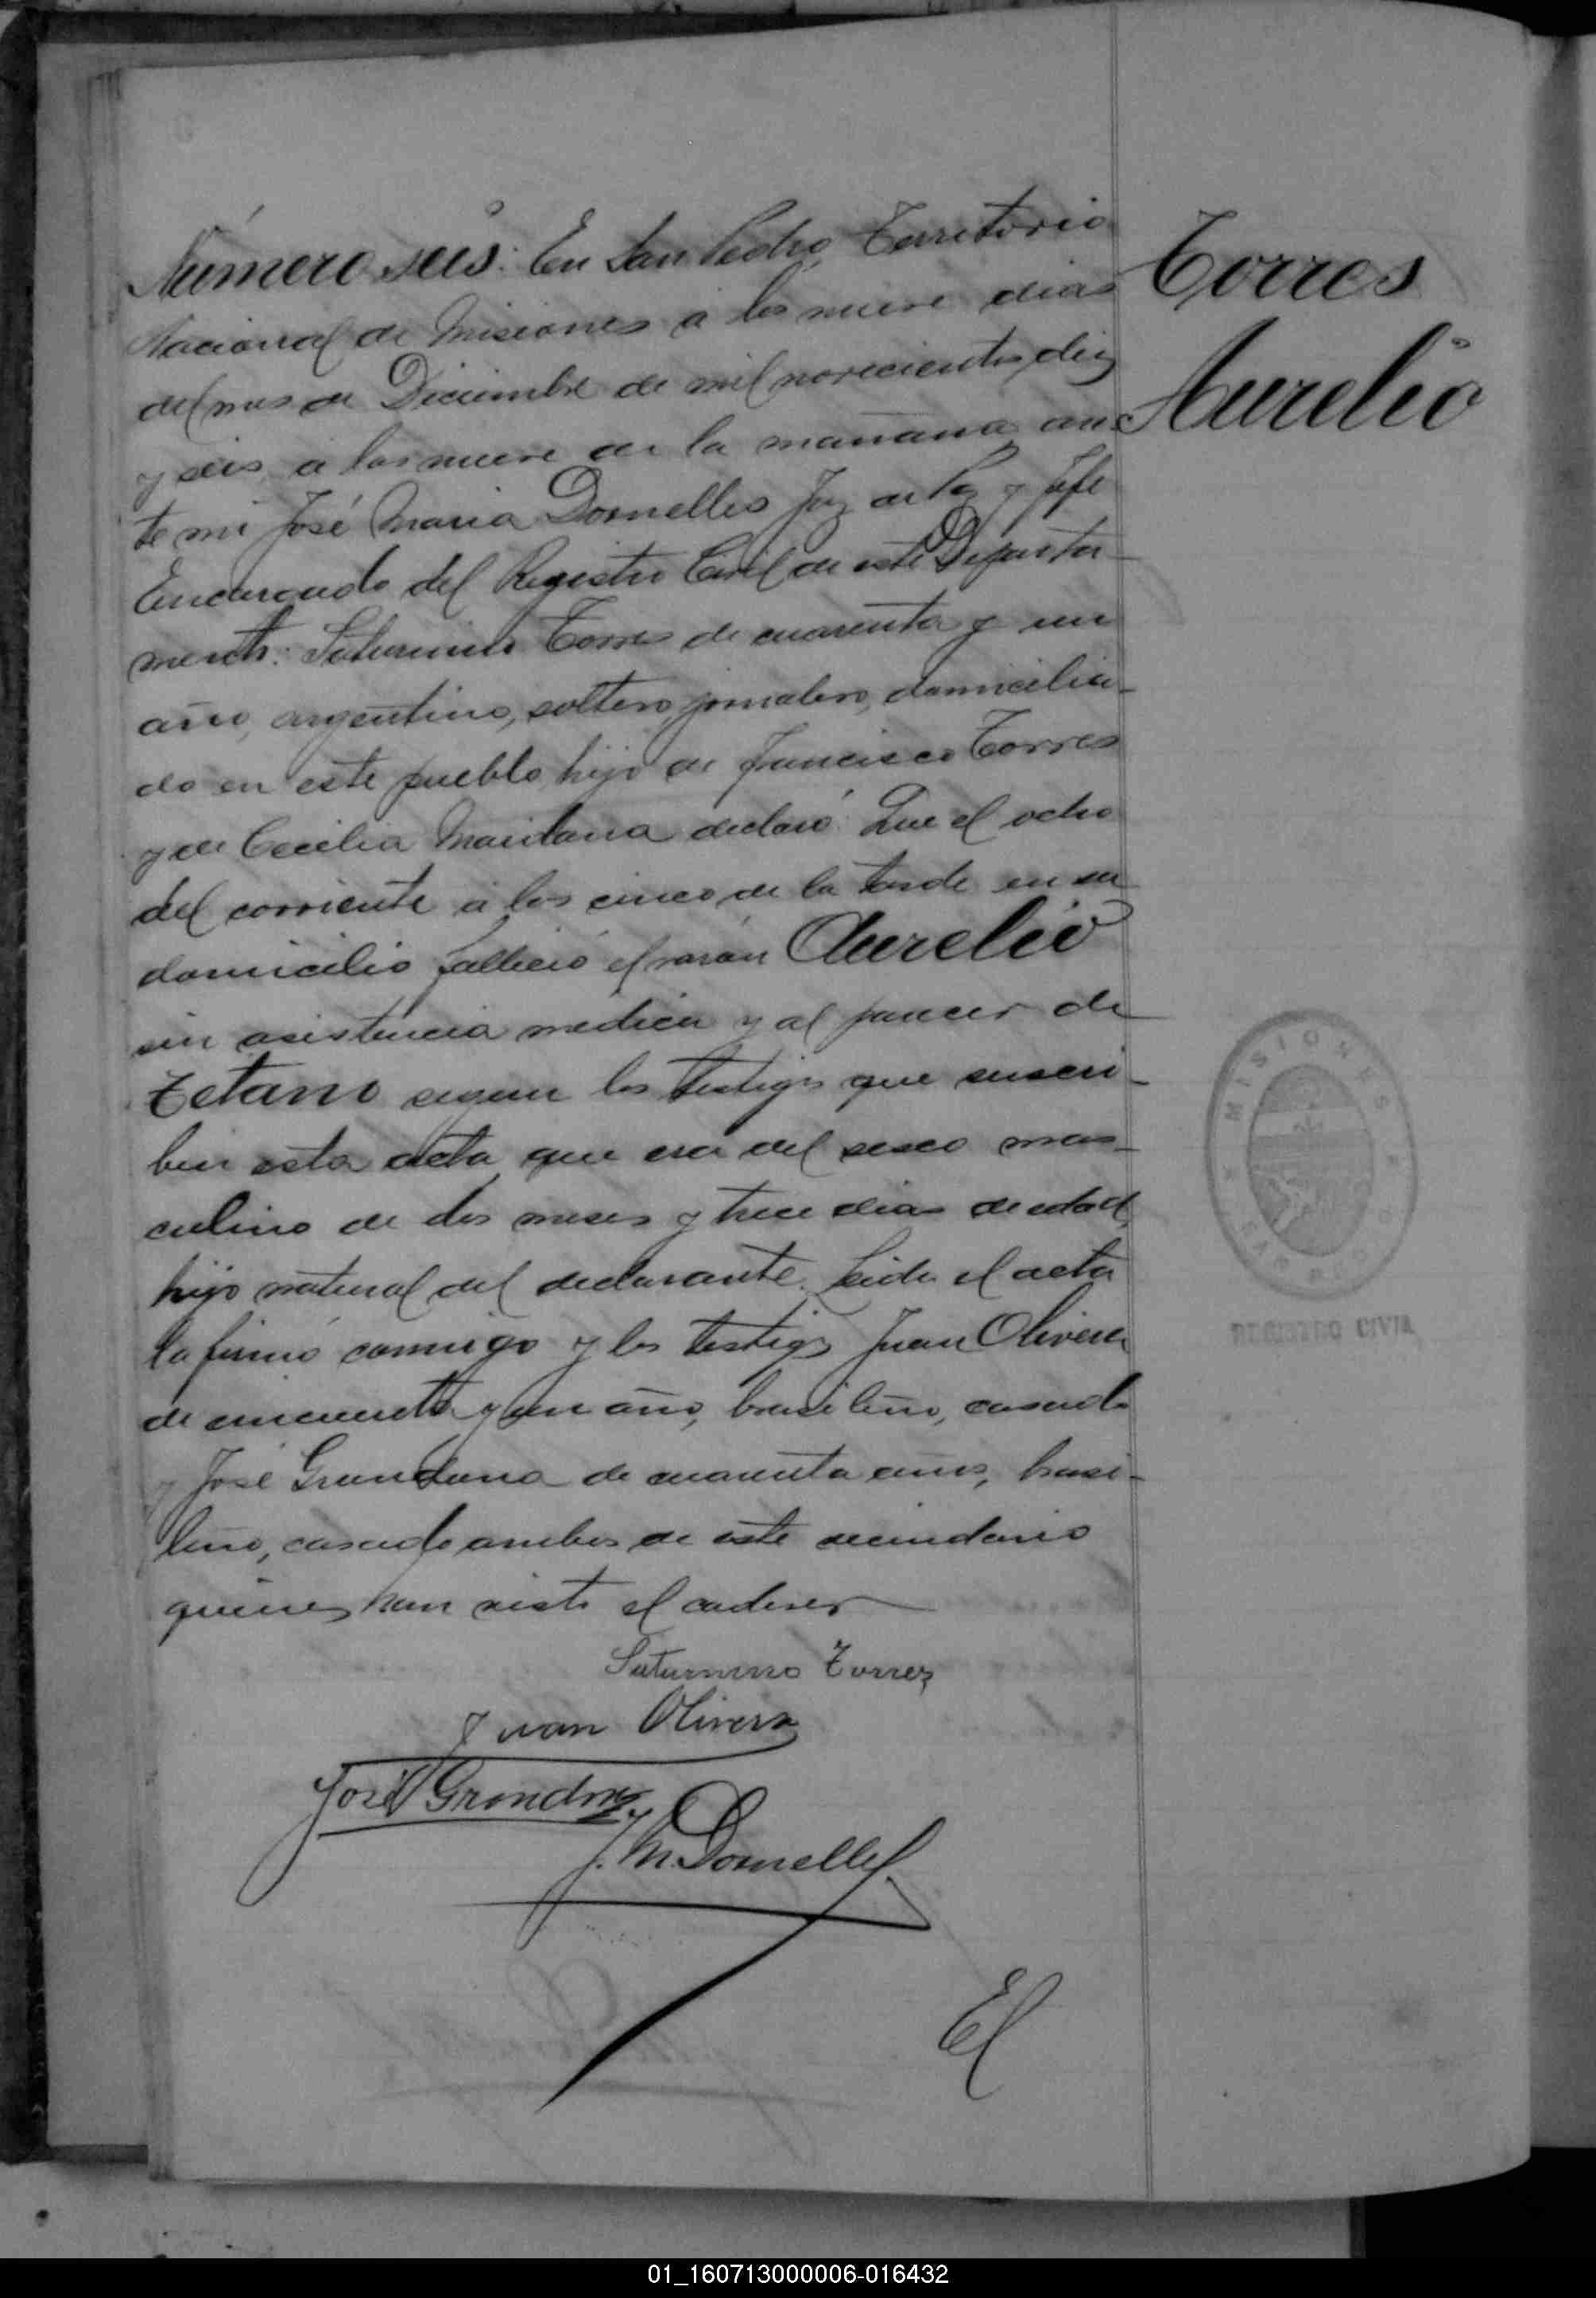 Número seis: En San Pedro, Territorio
Nacional de Misiones a los nueve dias
del mes de Diciembre de mil novecientos diez
y seis, a las nueve de la mañana, an
te mi José Maria Dornelles Juez de Paz y Jefe
Encargado del Registro Civil de este Departa-
mento: Saturnino Torres de cuarenta y un
año, argentino, soltero, jornalero, domicilia-
do en este pueblo, hijo de Francisco Torres
y de Cecilia Maidana declaró: Que el ocho
del corriente á las cinco de la tarde en su
domicilio falleció el varón Aurelio
sin asistencia médica y al parecer de
Tetano segun los testigos que suscri-
ben esta acta, que era del secso mas-
culino de dos meses y trece dias de edad,
hijo natural del declarante. Leida el acta
la firmó conmigo y los testigos Juan Olivera
de cincuenta y un año, brasileño, casado
y José Grandona de cuarenta años, brasi-
leño, casado ambos de este vecindario
quienes han visto el cadaver
Saturnino Torres
Juan Olivera
José Grondona
J. M. Dornelles
El
Torres
Aurelio
MISIONES
REGISTRO CIVIL
01_160713000006-016432